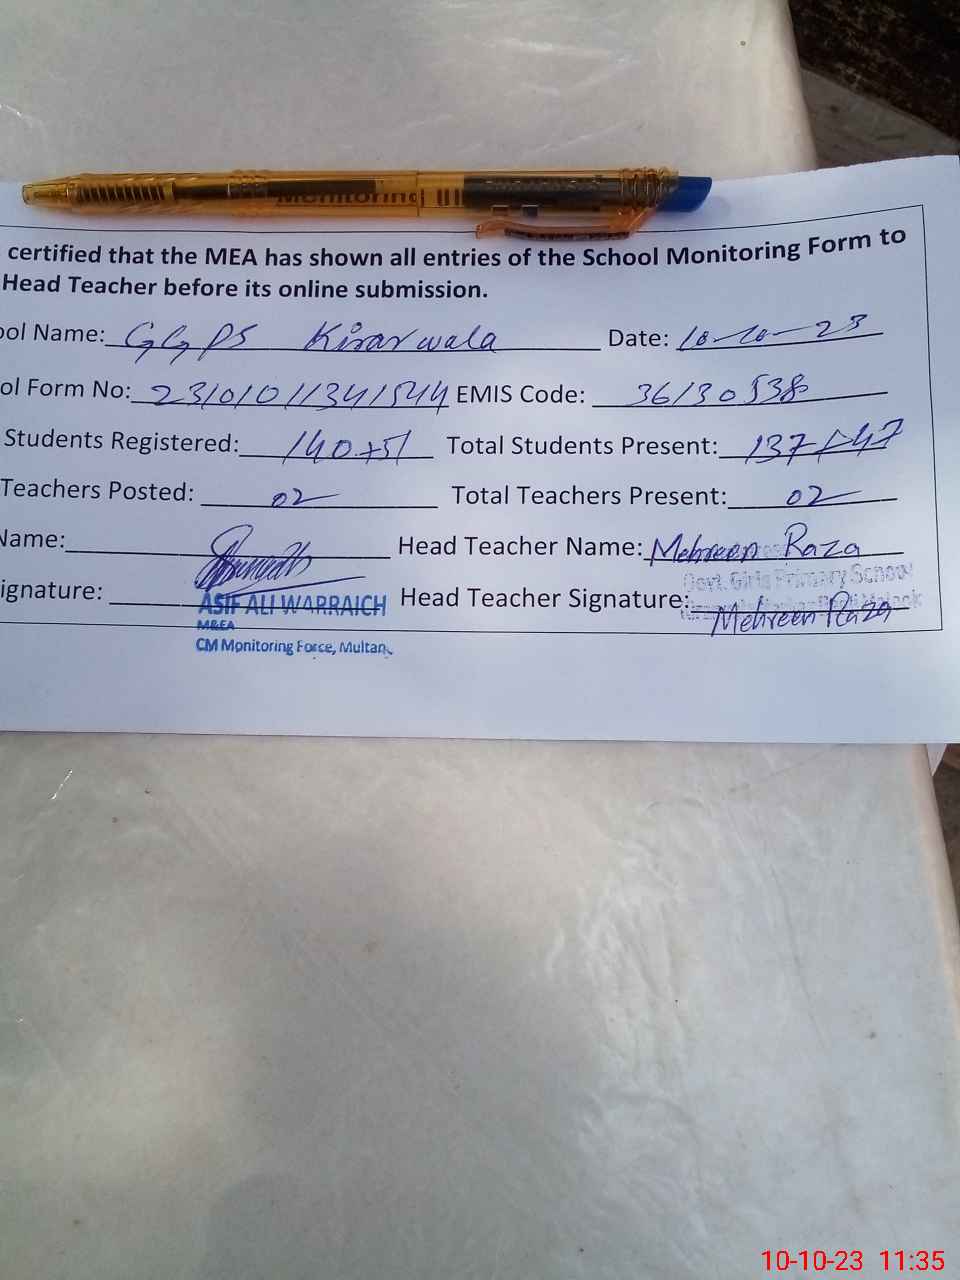 Monitoring
certified that the MEA has shown all entries of the School Monitoring Form to
Head Teacher before its online submission.
ool Name: GGPS Kirarwala Date: 10-10-23
ol Form No: 23101011341544 EMIS Code: 36130538
Students Registered: 140+51 Total Students Present: 137+47
Teachers Posted: 02 Total Teachers Present: 02
Name: Head Teacher Name: Mehreen Raza
Govt. Girls Primary School
ignature: ASIF ALI WARRAICH Head Teacher Signature: Mehreen Raza
M&EA
CM Monitoring Force, Multan.
10-10-23 11:35